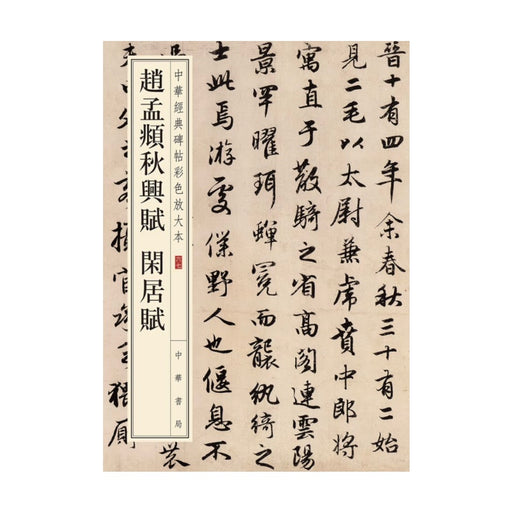 晉十有四年余春秋三十有二始
見二毛以太尉兼虎賁中郎將
寓直于散騎之省高閣連雲陽
景罕曜珥蟬冕而襲紈綺之
士此焉游處僕野人也偃息不
中華經典碑帖彩色放大本
中華書局
趙孟頫秋興賦 閑居賦
猥廁